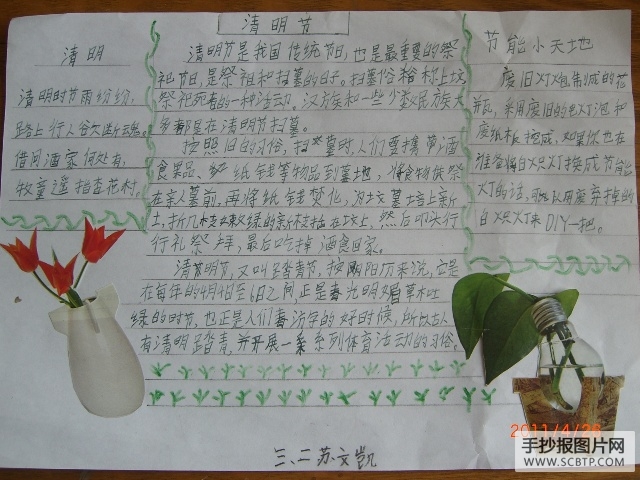 清明节
清明
清明时节雨纷纷,
路上行人欲断魂。
借问酒家何处有,
牧童遥指杏花村。
清明节是我国传统节日,也是最重要的祭
祀节日,是祭祖和扫墓的日子。扫墓俗称上坟
祭祀死者的一种活动,汉族和一些少数民族大
多都是在清明节扫墓。
按照旧的习俗,扫墓时,人们要携带酒
食果品、纸钱等物品到墓地,将食物供祭
在亲人墓前,再将纸钱焚化,为坟墓培上新
土,折几枝嫩绿的新枝插在坟上,然后叩头行
行礼祭拜,最后吃掉酒食回家。
清明节,又叫踏青节,按阳历来说,它是
在每年的4月4日至6日之间,正是春光明媚草木吐
绿的时节,也正是人们春游的好时候,所以古人
有清明踏青,并开展一系列体育活动的习俗。
节能小天地
废旧灯炮制成的花
瓶,采用废旧的电灯泡和
废纸板换成,如果你也在
准备将白炽灯换成节能
灯的话,可以用废弃掉的
白炽灯来DIY一把。
三、二苏文凯
2011/4/26
手抄报图片网
WWW.SCBTP.COM